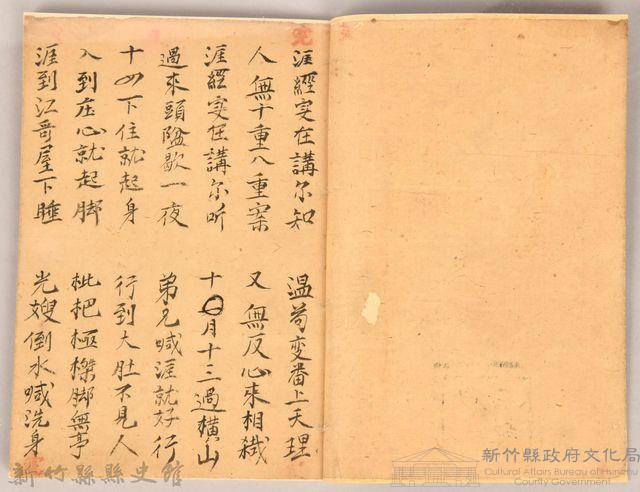 涯經实在講尔知 温苟变番上天理
人無十重八重案 又無反心来相織
涯經实在講尔听 十〇月十三過横山
過来頭隘歇一夜 弟兄喊涯就好行
十四下住就起身 行到大肚不見人
入到庄心就起脚 枇杷極榤脚無亭
涯到江哥屋下睡 光嫂倒水喊洗身
新竹縣縣史館
新竹縣政府文化局
Cultural Affairs Bureau of Hsinchu
County Government